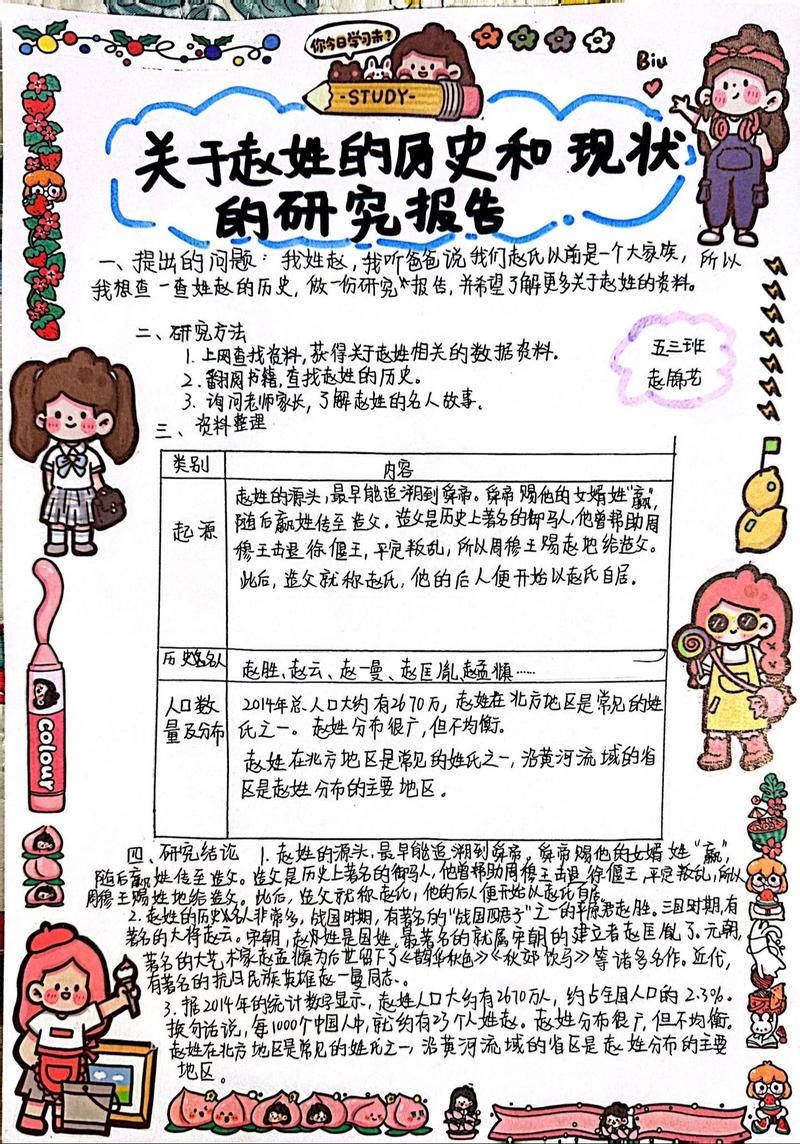 你今日学习未?
-STUDY-
Biu
关于赵姓的历史和现状
的研究报告
一、提出的问题:我姓赵,我听爸爸说我们赵氏以前是一个大家族,所以
我想查一查姓赵的历史,做一份研究报告,并希望了解更多关于赵姓的资料。
二、研究方法
1.上网查找资料,获得关于赵姓相关的数据资料。
2.翻阅书籍,查找赵姓的历史。
3.询问老师家长,了解赵姓的名人故事。
五三班
赵锦艺
三、资料整理
类别 内容
起源
赵姓的源头,最早能追溯到舜帝。舜帝赐他的女婿姓“嬴”,
随后嬴姓传至造父。造父是历史上著名的御马人,他曾帮助周
穆王击退徐偃王,平定叛乱,所以周穆王赐赵地给造父。
此后,造父就称赵氏,他的后人便开始以赵氏自居。
历史名人 赵胜、赵云、赵一曼、赵匡胤、赵孟頫……
人口数
量及分布
2014年总人口大约有2670万,赵姓在北方地区是常见的姓
氏之一。赵姓分布很广,但不均衡。
赵姓在北方地区是常见的姓氏之一,沿黄河流域的省
区是赵姓分布的主要地区。
四、研究结论 1.赵姓的源头,最早能追溯到舜帝。舜帝赐他的女婿姓“嬴”,
随后嬴姓传至造父。造父是历史上著名的御马人,他曾帮助周穆王击退徐偃王,平定叛乱,所以
周穆王赐姓地给造父。此后,造父就称赵氏,他的后人便开始以赵氏自居。
2.赵姓的历史名人非常多,战国时期,有著名的“战国四君子”之一的平原君赵胜。三国时期,有
著名的大将赵云。宋朝,赵姓是国姓,最著名的就属宋朝的建立者赵匡胤了。元朝,
著名的大艺术家赵孟頫为后世留下了《鹊华秋色》《秋郊饮马》等诸多名作。近代,
有著名的抗日民族英雄赵一曼同志。
3.据2014年的统计数字显示,赵姓人口大约有2670万人,约占全国人口的2.3%。
换句话说,每1000个中国人中,就约有23个人姓赵。赵姓分布很广,但不均衡。
赵姓在北方地区是常见的姓氏之一,沿黄河流域的省区是赵姓分布的主要
地区。
colour